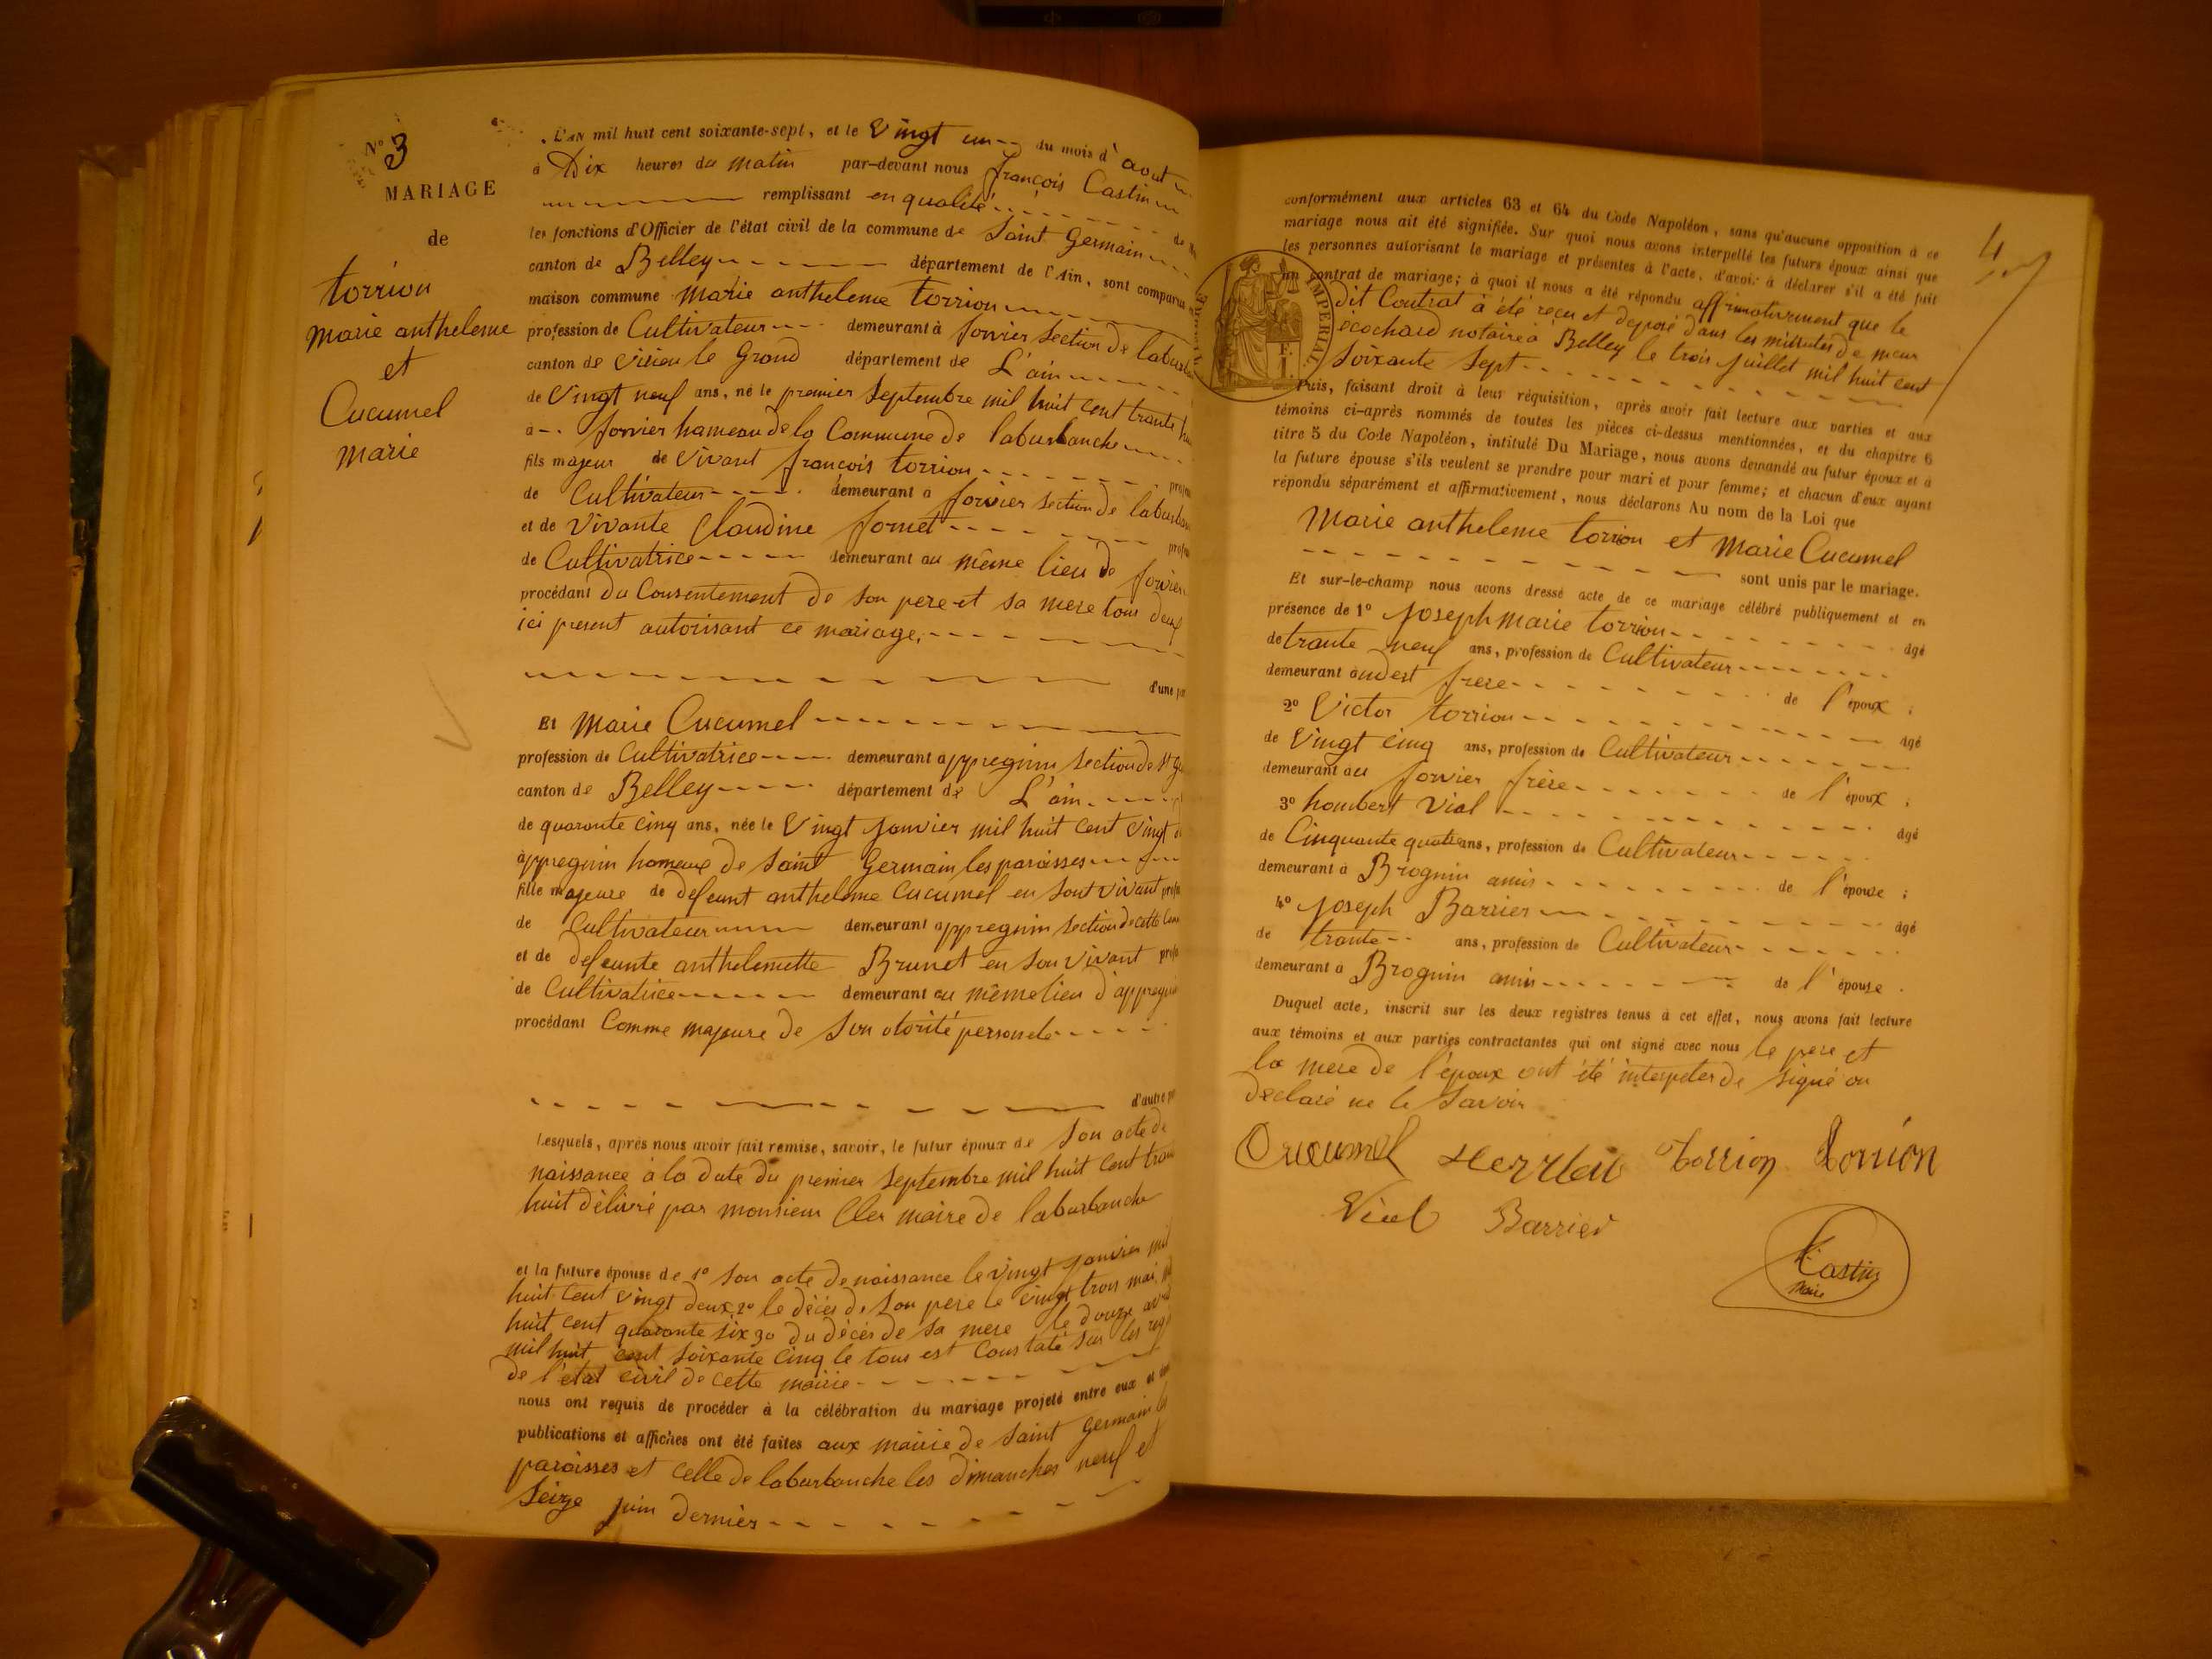 N° 3
MARIAGE
de
torrion
marie antheleme
et
Cucumel
marie
L'AN mil huit cent soixante-sept, et le Vingt un du mois d'aout
à Dix heures du matin par-devant nous françois Castin
remplissant en qualité
les fonctions d'Officier de l'état civil de la commune de Saint Germain
canton de Belley département de l'Ain, sont comparus
maison commune marie antheleme torrion
profession de Cultivateur demeurant à forvier section de
canton de virieu le Grand département de L'ain
de Vingt neuf ans, né le premier Septembre mil huit cent trante
à forvier hameau de la Commune de laburbanche
fils majeur de Vivant françois torrion
de Cultivateur demeurant à forvier section de
et de Vivante Claudine fornet
de Cultivatrice demeurant au même lieu de forvier
procédant du Consentement de son pere et sa mere tous deux
ici present autorisant ce mariage,
d'une
Et Marie Cucumel
profession de Cultivatrice demeurant appregnin section de St
canton de Belley département de L'ain
de quarante cinq ans, née le Vingt janvier mil huit cent vingt
appregnin hameux de Saint Germain les paroisses
fille majeure de defeunt antheleme Cucumel en sont vivant
de Cultivateur demeurant appregnin section de cette
et de defeunte anthelemette Brunet en son vivant
de Cultivatrice demeurant au même lieu d'appregnin
procédant Comme majeure de son otorité personele
d'autre
Lesquels, après nous avoir fait remise, savoir, le futur époux de son acte de
naissance à la date du premier Septembre mil huit cent
huit délivré par monsieur Cler maire de laburbanche
et la future épouse de 1° son acte de naissance le vingt janvier mil
huit cent vingt deux 2° le décès de son pere le vingt trois mai
huit cent quarante six 3° du décès de sa mere le douze
mil huit cent soixante cinq le tous est Constaté sur les
de l'état civil de cette mairie
nous ont requis de procéder à la célébration du mariage projeté entre eux et
publications et affiches ont été faites aux mairie de Saint Germain
paroisses et celle de laburbanche les dimanches neuf et
seize juin dernier
4
conformément aux articles 63 et 64 du Code Napoléon, sans qu'aucune opposition à ce
mariage nous ait été signifiée. Sur quoi nous avons interpellé les futurs époux ainsi que
les personnes autorisant le mariage et présentes à l'acte, d'avoir à déclarer s'il a été fait
un contrat de mariage; à quoi il nous a été répondu affirmativement que le
dit Contrat à été reçu et déposé dans les minutes de
écochard notaire à Belley le trois juillet mil huit cent
soixante sept
Puis, faisant droit à leur réquisition, après avoir fait lecture aux parties et aux
témoins ci-après nommés de toutes les pièces ci-dessus mentionnées, et du chapitre 6
titre 5 du Code Napoléon, intitulé Du Mariage, nous avons demandé au futur époux et à
la future épouse s'ils veulent se prendre pour mari et pour femme; et chacun d'eux ayant
répondu séparément et affirmativement, nous déclarons Au nom de la Loi que
Marie antheleme torrion et Marie Cucumel
sont unis par le mariage.
Et sur-le-champ nous avons dressé acte de ce mariage célébré publiquement et en
présence de 1° joseph marie torrion âgé
de trante neuf ans, profession de Cultivateur
demeurant frere de l'époux ;
2° Victor torrion âgé
de Vingt cinq ans, profession de Cultivateur
demeurant au forvier frère de l'époux ;
3° hombert Vial âgé
de Cinquante quatre ans, profession de Cultivateur
demeurant à Brognin amis de l'épouse ;
4° joseph Barrier âgé
de trante ans, profession de Cultivateur
demeurant à Brognin amis de l'épouse .
Duquel acte, inscrit sur les deux registres tenus à cet effet, nous avons fait lecture
aux témoins et aux parties contractantes qui ont signé avec nous le pere et
la mere de l'époux ont été de signé on
declaré ne le savoir
Cucumel torrion torrion
Vial Barrier
Castin
Maire